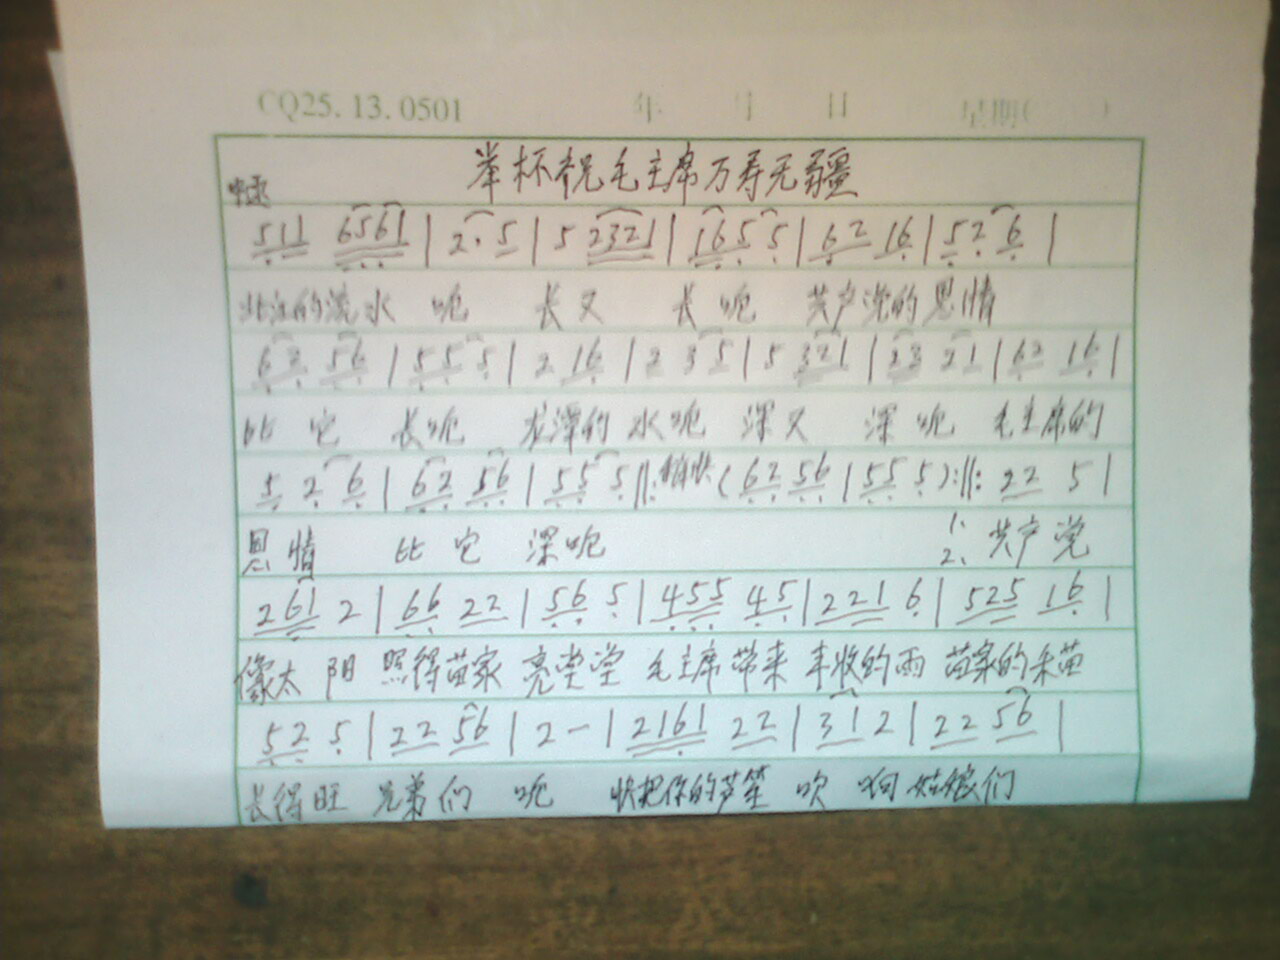 CQ25.13.0501 年 月 日 星期( )
举杯祝毛主席万寿无疆
中速
511 6561 | 2· 5 | 5 2321 | 165 5 | 62 16 | 52 6 |
北江的流水 呃 长又 长呃 共产党的恩情
62 56 | 55 5 | 2 16 | 2 35 | 5 321 | 23 21 | 62 16 |
比它 长呃 龙潭的水呃 深又 深呃 毛主席的
5 2 6 | 62 56 | 55 5 ‖: 稍快 (62 56 | 55 5) :‖: 22 5 |
恩情 比它 深呃 1、2、共产党
261 2 | 66 22 | 56 5 | 455 45 | 221 6 | 525 16 |
像太阳 照得苗家 亮堂堂 毛主席带来 丰收的雨 苗家的禾苗
52 5 | 22 56 | 2 – | 2161 22 | 31 2 | 22 56 |
长得旺 兄弟们 呃 快把你的芦笙 吹 响 姑娘们